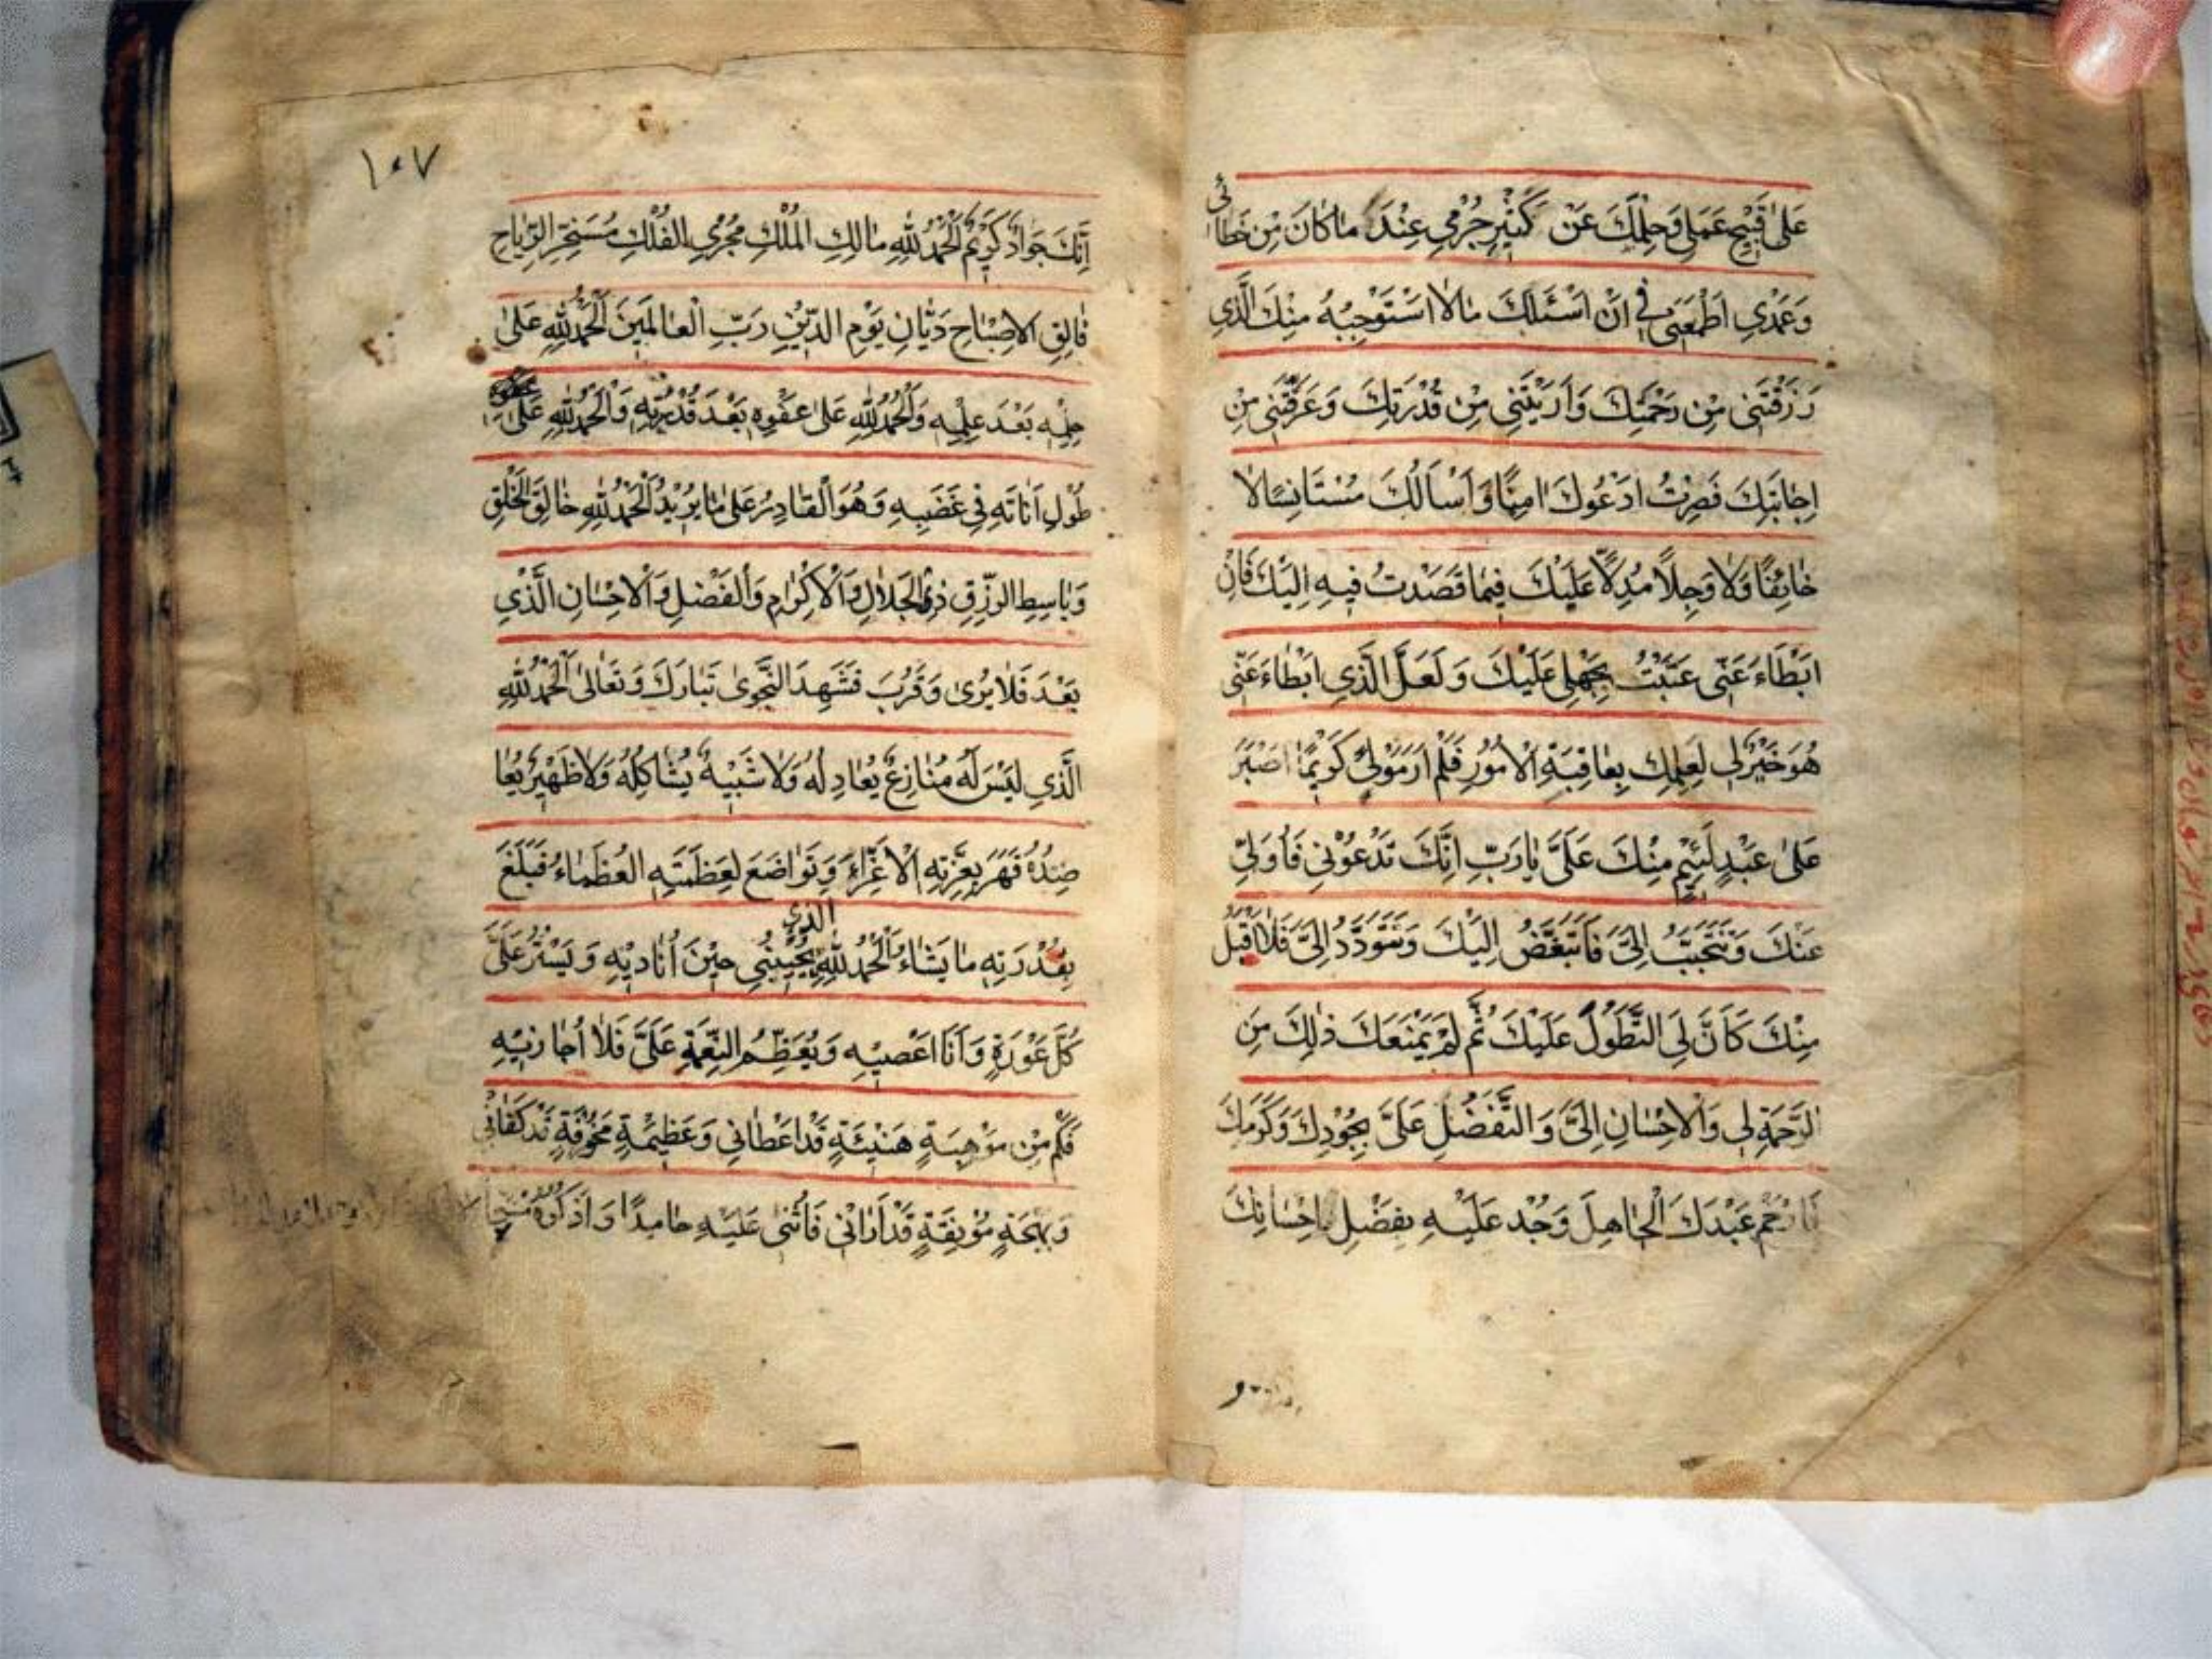 عَلىٰ قَبِيحِ عَمَلِي وَحِلْمَكَ عَنْ كَثِيرِ جُرْمِي عِنْدَ مَا كَانَ مِنْ خَطَائي
وَعَمْدِي اَطْمَعَنِي فِي اَنْ اَسْئَلَكَ مٰا لاٰ اَسْتَوْجِبُهُ مِنْكَ الَّذِي
رَزَقْتَنِي مِنْ رَحْمَتِكَ وَاَرَيْتَنِي مِنْ قُدْرَتِكَ وَعَرَّفْتَنِي مِنْ
اِجٰابَتِكَ فَصِرْتُ اَدْعُوكَ اٰمِنًا وَاَسْاَلُكَ مُسْتَانِسًا لاٰ
خٰائِفًا وَلاٰ وَجِلاً مُدِلاًّ عَلَيْكَ فِيمٰا قَصَدْتُ فِيهِ اِلَيْكَ فَاِنْ
اَبْطَاءَ عَنّي عَتَبْتُ بِجَهْلِي عَلَيْكَ وَلَعَلَّ الَّذِي اَبْطٰاءَ عَنّي
هُوَ خَيْرٌ لِي لِعِلْمِكَ بِعٰاقِبَةِ الْاُمُورِ فَلَمْ اَرَ مَوْلىً كَرِيمًا اَصْبَرَ
عَلىٰ عَبْدٍ لَئِيمٍ مِنْكَ عَلَيَّ يٰا رَبِّ اِنَّكَ تَدْعُوْنِي فَاُوَلّي
عَنْكَ وَتَتَحَبَّبُ اِلَيَّ فَاَتَبَغَّضُ اِلَيْكَ وَتَتَوَدَّدُ اِلَيَّ فَلاٰ اَقْبَلُ
مِنْكَ كَاَنَّ لِيَ التَّطَوُّلَ عَلَيْكَ ثُمَّ لَمْ يَمْنَعَكَ ذٰلِكَ مِنَ
الرَّحْمَةِ لِي وَالْاِحْسٰانِ اِلَيَّ وَالتَّفَضُّلِ عَلَيَّ بِجُوْدِكَ وَكَرَمِكَ
فَارْحَمْ عَبْدَكَ الْجٰاهِلَ وَجُدْ عَلَيْهِ بِفَضْلِ اِحْسٰانِكَ
١٠٧
اِنَّكَ جَوَادٌ كَرِيْمٌ اَلْحَمْدُ لِلّٰهِ مٰالِكِ الْمُلْكِ مُجْرِي الْفُلْكِ مُسَخِّرِ الرِّيٰاحِ
فٰالِقِ الْاِصْبٰاحِ دَيّٰانِ يَوْمِ الدِّيْنِ رَبِّ الْعٰالَمِيْنَ اَلْحَمْدُ لِلّٰهِ عَلىٰ
حِلْمِهِ بَعْدَ عِلْمِهِ وَالْحَمْدُ لِلّٰهِ عَلىٰ عَفْوِهِ بَعْدَ قُدْرَتِهِ وَالْحَمْدُ لِلّٰهِ عَلىٰ
طُوْلِ اَنٰاتِهِ فِي غَضَبِهِ وَهُوَ الْقٰادِرُ عَلىٰ مٰا يُرِيْدُ اَلْحَمْدُ لِلّٰهِ خٰالِقِ الْخَلْقِ
وَبٰاسِطِ الرِّزْقِ ذِي الْجَلاٰلِ وَالْاِكْرٰامِ وَالْفَضْلِ وَالْاِحْسٰانِ الَّذِي
بَعُدَ فَلاٰ يُرىٰ وَقَرُبَ فَشَهِدَ النَّجْوىٰ تَبٰارَكَ وَتَعٰالىٰ اَلْحَمْدُ لِلّٰهِ
الَّذِي لَيْسَ لَهُ مُنٰازِعٌ يُعٰادِلُهُ وَلاٰ شَبِيْهٌ يُشٰاكِلُهُ وَلاٰ ظَهِيْرٌ يُعٰا
ضِدُهُ قَهَرَ بِعِزَّتِهِ الْاَعِزّٰاءَ وَتَوٰاضَعَ لِعَظَمَتِهِ الْعُظَمٰاءُ فَبَلَغَ
بِقُدْرَتِهِ مٰا يَشٰاءُ اَلْحَمْدُ لِلّٰهِ الذي يُجِيْبُنِي حِيْنَ اُنٰادِيْهِ وَيَسْتُرُ عَلَيَّ
كُلَّ عَوْرَةٍ وَاَنَا اَعْصِيْهِ وَيُعَظِّمُ النِّعْمَةَ عَلَيَّ فَلاٰ اُجٰازِيْهِ
فَكَمْ مِنْ مَوْهِبَةٍ هَنِيْئَةٍ قَدْ اَعْطٰانِي وَعَظِيْمَةٍ مَخُوْفَةٍ قَدْ كَفٰانِي
وَبَهْجَةٍ مُوْنِقَةٍ قَدْ اَرٰانِي فَاُثْنِي عَلَيْهِ حٰامِدًا وَاَذْكُرُهُ مُسَبِّحًا